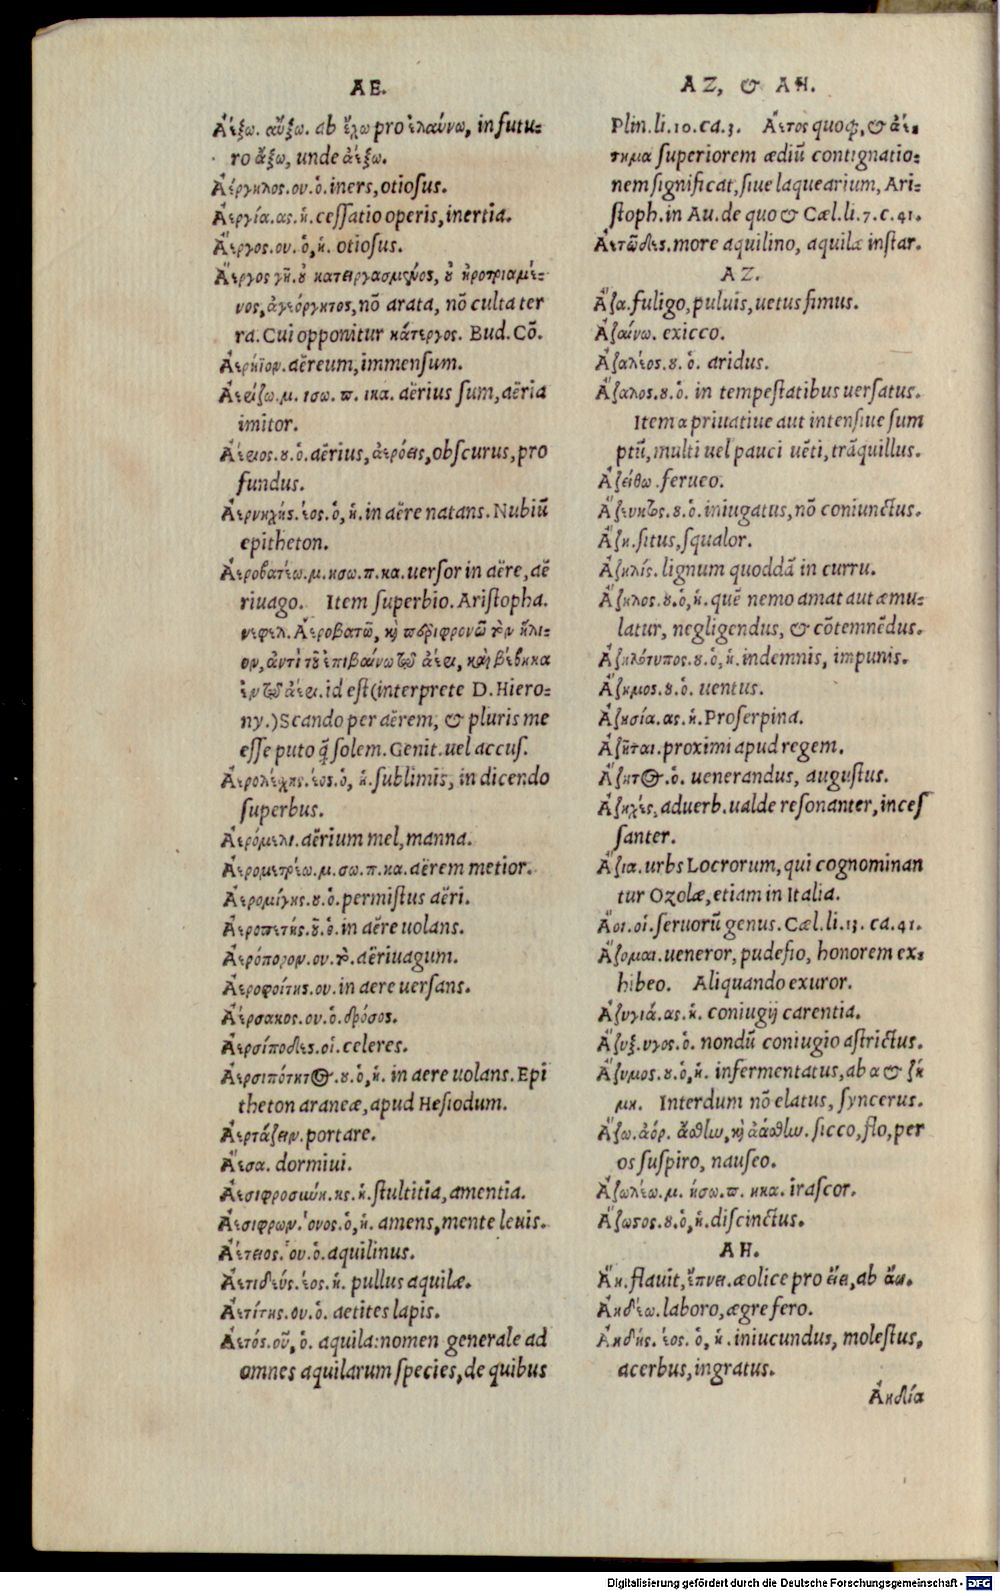 AE.
Ἀέξω. αὔξω. ab ἔλω pro ἐλαύνω, in futu-
ro ἄξω, unde ἀέξω.
Ἀέργηλος.ου.ὁ. iners, otiosus.
Ἀεργία.ας.ἡ. cessatio operis, inertia.
Ἀεργος.ου.ὁ,ἡ. otiosus.
Ἄεργος γῆ.ὐ κατειργασμένος, ὐ ἠροτριαμέ-
νος, ἀγεόργητος, nõ arata, nõ culta ter
ra. Cui opponitur κάτεργος. Bud. Cõ.
Ἀερήϊον. aëreum, immensum.
Ἀερίζω.μ. ισω. π. ικα. aërius sum, aëria
imitor.
Ἀέριος.ȣ.ὁ. aërius, ἀερόεις, obscurus, pro
fundus.
Ἀερνηχής.έος.ὁ,ἡ. in aëre natans. Nubiũ
epitheton.
Ἀεροβατέω.μ.ησω.π.κα. uersor in aëre, aë
riuago. Item superbio. Aristopha.
νεφελ. Ἀεροβατῶ, καὶ περιφρονῶ τὸν ἥλι-
ον, ἀντὶ τȣ ἐπιβαίνω τῷ ἀέρι, καὶ βέβηκα
ἐν τῷ ἀέρι. id est (interprete D. Hiero-
ny.) Scando per aërem, & pluris me
esse puto q̃ solem. Genit. uel accus.
Ἀερολέχης.έος.ὁ, ἡ. sublimis, in dicendo
superbus.
Ἀερόμελι. aërium mel, manna.
Ἀερομετρέω.μ.σω.π.κα. aërem metior.
Ἀερομίγης.ȣ.ὁ. permistus aëri.
Ἀεροπετής.ȣ.ὁ. in aëre uolans.
Ἀερόπορον.ου.τὸ. aëriuagum.
Ἀεροφοίτης.ου. in aere uersans.
Ἀέρσακος.ου.ὁ. δρόσος.
Ἀερσίποδες.οἱ. celeres.
Ἀερσιπότητος.ȣ.ὁ,ἡ. in aere uolans. Epi
theton araneæ, apud Hesiodum.
Ἀερτάζειν. portare.
Ἄεσα. dormiui.
Ἀεσιφροσύνη.ης.ἡ. stultitia, amentia.
Ἀεσίφρων.ονος.ὁ,ἡ. amens, mente leuis.
Ἀέτειος.ου.ὁ. aquilinus.
Ἀετιδεύς.έος.ἡ. pullus aquilæ.
Ἀετίτης.ου.ὁ. aetites lapis.
Ἀετός.οῦ, ὁ. aquila: nomen generale ad
omnes aquilarum species, de quibus
AZ, & AH.
Plin. li. 10. ca. 3. Ἀετος quoq;, & ἀέ-
τημα superiorem ædiũ contignatio-
nem significat, siue laquearium, Ari-
stoph. in Au. de quo & Cæl. li. 7. c. 41.
Ἀετῶδες. more aquilino, aquilæ instar.
AZ.
Ἄζα. fuligo, puluis, uetus fimus.
Ἀζαίνω. exicco.
Ἀζαλέος.ȣ.ὁ. aridus.
Ἄζαλος.ȣ.ὁ. in tempestatibus uersatus.
Item α priuatiue aut intensiue sum
ptũ, multi uel pauci uẽti, trãquillus.
Ἀζείθω. ferueo.
Ἄζευκτος.ȣ.ὁ. iniugatus, nõ coniunctus.
Ἄζη. situs, squalor.
Ἀζηλίς. lignum quoddã in curru.
Ἄζηλος.ȣ.ὁ,ἡ. quẽ nemo amat aut æmu-
latur, negligendus, & cõtemnẽdus.
Ἀζηλότυπος.ȣ.ὁ,ἡ. indemnis, impunis.
Ἄζημος.ȣ.ὁ. uentus.
Ἀζησία.ας.ἡ. Proserpina.
Ἀζῆται. proximi apud regem.
Ἄζητος.ὁ. uenerandus, augustus.
Ἀζηχές. aduerb. ualde resonanter, inces
santer.
Ἄζια. urbs Locrorum, qui cognominan
tur Ozolæ, etiam in Italia.
Ἄοι.οἱ. seruorũ genus. Cæl. li. 13. ca. 41.
Ἄζομαι. ueneror, pudefio, honorem ex-
hibeo. Aliquando exuror.
Ἀζυγιά.ας.ἡ. coniugij carentia.
Ἄζυξ.υγος.ὁ. nondũ coniugio astrictus.
Ἄζυμος.ȣ.ὁ,ἡ. infermentatus, ab α & ζύ
μη. Interdum nõ elatus, syncerus.
Ἄζω. ἀόρ. ἄσθω, καὶ ἀάσθω. sicco, flo, per
os suspiro, nauseo.
Ἀζωλέω.μ. ήσω.π. ηκα. irascor.
Ἄζωτος.ȣ.ὁ,ἡ. discinctus.
AH.
Ἄη. flauit, ἔπνει. æolice pro ἄει, ab ἄω.
Ἀηδέω. laboro, ægre fero.
Ἀηδής.έος.ὁ, ἡ. iniucundus, molestus,
acerbus, ingratus.
Ἀηδία
Digitalisierung gefördert durch die Deutsche Forschungsgemeinschaft - DFG